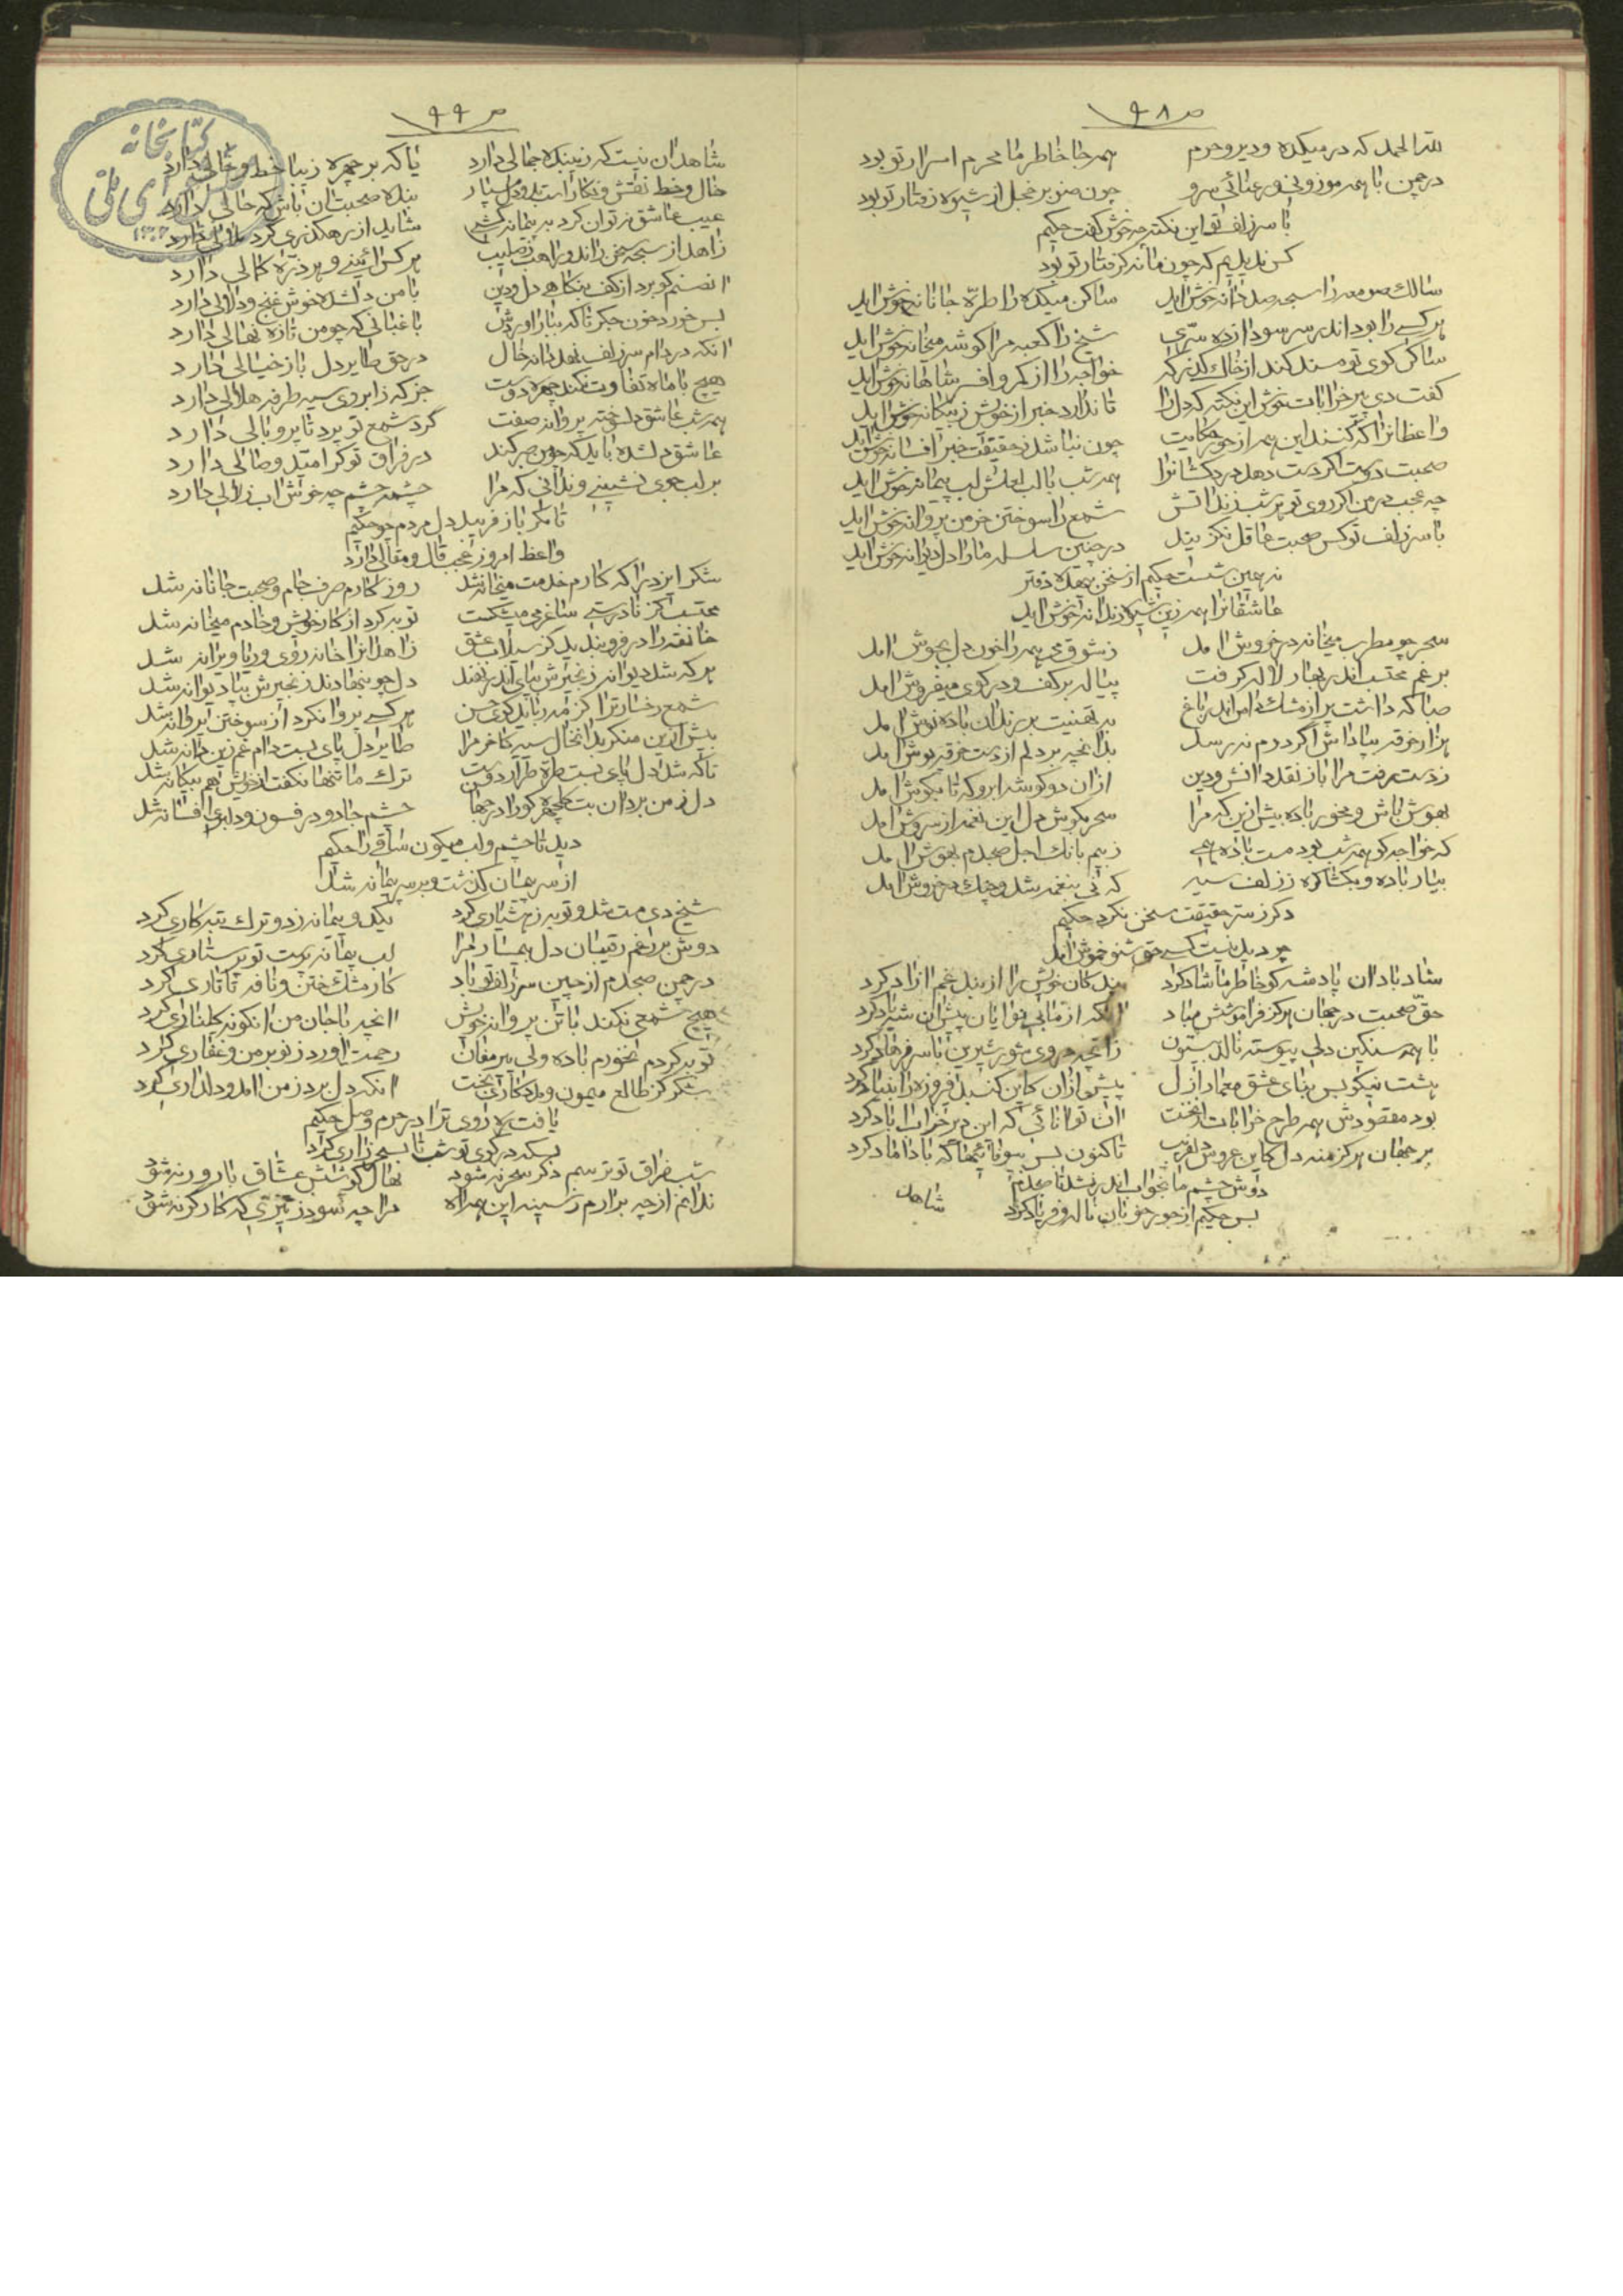 ص ۹۸
لله الحمد که در میکده و دیر و حرم همه جا خاطر ما محرم اسرار تو بود
در چمن با همه موزونی و رعنائی سرو چون صنوبر خجل از شیوه رفتار تو بود
با سر زلف تو این نکته چه خوش گفت حکیم
کس ندیدیم که چون ما نه گرفتار تو بود
سالک صومعه را سبحه صد دانه خوش آید ساکن میکده را طره جانانه خوش آید
هر کسی را بود اندر سر سودازده سری شیخ را کعبه مرا گوشه میخانه خوش آید
ساکن کوی تو مسند کند از خاک گذر که خواجه را از کمر و افسر شاهانه خوش آید
گفت دی پیر خرابات خوش این نکته که دل را تا ندارد خبر از خویش ز بیگانه خوش آید
واعظانرا که کنند این همه از حور حکایت چون نباشد ز حقیقت خبر افسانه خوش آید
صحبت دوست اگر دست دهد همه شب با لب لعلش لب پیمانه خوش آید
چه عجب در من اگر روی تو هر شب زند آتش شمع را سوختن خرمن پروانه خوش آید
با سر زلف تو کس صحبت عاقل نگزیند در چنین سلسله ما را دل دیوانه خوش آید
نه همین شست حکیم از سخن بیهده دفتر
عاشقانرا همه زین شیوه رندانه خوش آید
سحر چو مطرب میخانه در خروش آمد ز شوق می همه را خون دل بجوش آمد
برغم محتسب اندر بهار لاله گرفت پیاله بر کف و در کوی میفروش آمد
صبا که داشت پر از مشک دامن اندر باغ به تهنیت بر رندان باده نوش آمد
هزار خرقه بپاداش اگر دهم نه رسد بدانچه بر دلم از دست خرقه پوش آمد
ز دست رفت مرا باز نقد دانش و دین از آن دو گوشه ابرو که تا بگوش آمد
بهوش باش و مخور باده بیش ازین که مرا سحر بگوش دل این نغمه از سروش آمد
که خواجه کو همه شب بود مست باده همی ز بیم بانگ اجل صبحدم بهوش آمد
بیار باده و بگشا گره ز زلف سیه که نی بنغمه شد و چنگ در خروش آمد
دگر ز سر حقیقت سخن نکرد حکیم
چو دید نیست کسی حق شنو خموش آمد
شاد باد آن پادشه کو خاطر ما شاد کرد بندگان خویش را از بند غم آزاد کرد
حق صحبت در جهان هرگز فراموشش مباد آنکه از ما بینوایان پیش آن شه یاد کرد
با همه سنگین دلی پیوسته نالد بیستون زانچه در وی شور شیرین با سر فرهاد کرد
هشت نیکو بس بنای عشق معمار ازل پیش از آن کاین گنبد فیروزه را بنیاد کرد
بود مقصودش همه طرح خرابات آن توانائی که این دیر خراب آباد کرد
بر جهان هرگز منه دل کاین عروس دلفریب تاکنون بس بیوفائیها که با داماد کرد
دوش چشم ما بخواب اندر نشد تا صبحدم
بس حکیم از جور خوبان ناله و فریاد کرد
شاهد
ص ۹۹
شاهد آن نیست که زیبنده جمالی دارد یا که بر چهره زیبا خط و خالی دارد
خال و خط نقش و نگار است بنده صحبت آن باش که حالی دارد
عیب عاشق نتوان کرد به پیمانه کشی شاید از رهگذری گرد ملالی دارد
زاهد از سبحه سخن راند و راهب ز صلیب هر کس آئینی و هر ذره کمالی دارد
آن صنم کو برد از کف بنگاهی دل و دین با من دلشده خوش غنج و دلالی دارد
بس خورد خون جگر تا که ببار آوردش باغبانی که چو من تازه نهالی دارد
آنکه در دام سر زلف نهد دانه خال در حق طایر دل باز خیالی دارد
هیچ با ماه تفاوت نکند چهره دوست جز که ز ابروی سیه طرفه هلالی دارد
همه شب عاشق دلسوخته پروانه صفت گرد شمع تو پرد تا پر و بالی دارد
عاشق دلشده باید که چو من صبر کند در فراق تو گر امید وصالی دارد
بر لب جوی نشینی و ندانی که مرا چشمه چشم چه خوش آب زلالی دارد
تا مگر باز فریبد دل مردم چو حکیم
واعظ امروز عجب قال و مقالی دارد
شکر ایزد را که کارم خدمت میخانه شد روز کارم صرف جام و صحبت جانانه شد
محتسب کز نادرستی ساغر می میشکست توبه کرد از کار خویش و خادم میخانه شد
خانقه را در فرو بندید کز سیلاب عشق زاهدانرا خانه روی و ریا ویرانه شد
هر که شد دیوانه زنجیرش بپای اندر نهند دل چو بنهادند زنجیرش بپا دیوانه شد
شمع رخسار ترا هر کسی پروا نکرد از سوختن پروانه شد
بیش ازین منگر بدان خال سیه کاخر مرا طایر دل پای بست دام غم زین دانه شد
تا که شد دل پای بست طره طرار دوست ترک ما تنها نگفت از خویش هم بیگانه شد
دل ز من برد آن بت گلچهره کو را در جهان چشم جادو در فسون و دلبری افسانه شد
دید تا چشم و لب میگون ساقی را حکیم
از سر پیمان گذشت و بر سر پیمانه شد
شیخ دی مست شد و توبه ز هشیاری کرد یکدو پیمانه زد و ترک تبه کاری کرد
دوش بر رغم رقیبان دل بیمار مرا لب پیمانه پرست تو پرستاری کرد
در چمن صبحدم از چین سر زلف تو باد کار مشک ختن و نافه تاتاری کرد
هیچ شمعی نکند با تن پروانه خویش آنچه با جان من آنگونه گلناری کرد
توبه کردم نخورم باده ولی پیر مغان رحمت آورد ز نو بر من و غفاری کرد
شکر کز طالع میمون و مددکاری بخت آنکه دل برد ز من آمد و دلداری کرد
یافت ره روی ترا در حرم وصل حکیم
بسکه در کوی تو شب تا بسحر زاری کرد
شب فراق تو ترسم دگر سحر نه شود نهال کوشش عشاق بارور نه شود
ندانم از چه برآرم ز سینه این همه آه مرا چه سود ز تیری که کارگر نه شود